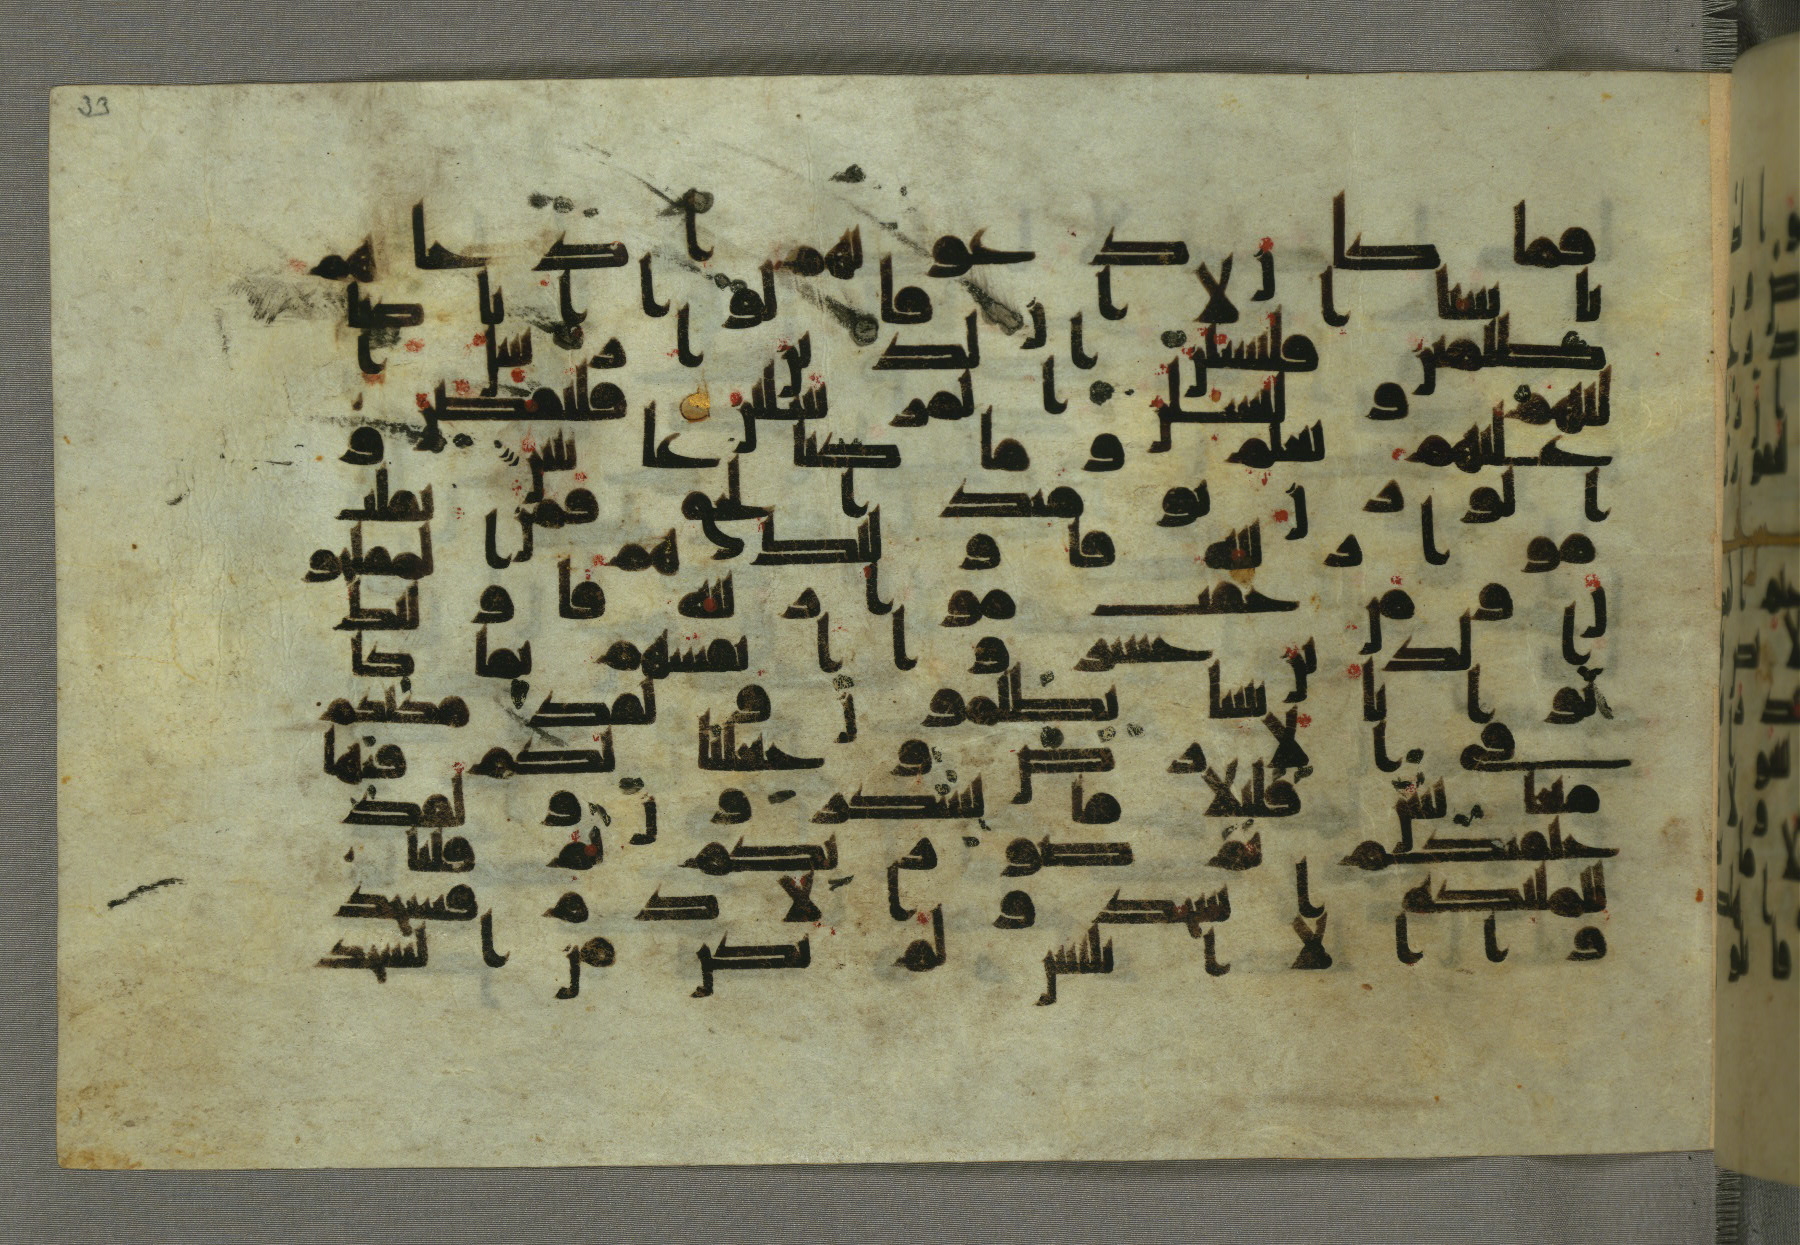 33
فما كان دعويهم اذ جاهم
باسنا الا ان قالوا انا كنا
ظلمين فلنسلن الذين ارسل ا
ليهم ولنسلن المرسلين فلنقصن
عليهم بعلم وما كنا غايبين و
الوزن يومئذ الحق فمن ثقلت
موازينه فاولئك هم المفلحو
ن ومن خفت موازينه فاولئك
الذين خسروا انفسهم بما كا
نوا بايتنا يظلمون ولقد مكنكم
في الارض وجعلنا لكم فيها
معيش قليلا ما تشكرون ولقد
خلقنكم ثم صورنكم ثم قلنا
للملئكة اسجدوا لادم فسجد
وا الا ابليس لم يكن من السجد